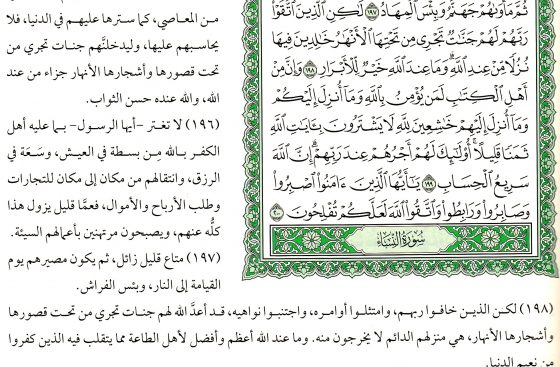 ثُمَّ مَأْوَىٰهُمْ جَهَنَّمُ وَبِئْسَ ٱلْمِهَادُ ١٩٧ لَٰكِنِ ٱلَّذِينَ ٱتَّقَوْا۟
رَبَّهُمْ لَهُمْ جَنَّٰتٌ تَجْرِى مِن تَحْتِهَا ٱلْأَنْهَٰرُ خَٰلِدِينَ فِيهَا
نُزُلًا مِّنْ عِندِ ٱللَّهِ وَمَا عِندَ ٱللَّهِ خَيْرٌ لِّلْأَبْرَارِ ١٩٨ وَإِنَّ مِنْ
أَهْلِ ٱلْكِتَٰبِ لَمَن يُؤْمِنُ بِٱللَّهِ وَمَآ أُنزِلَ إِلَيْكُمْ
وَمَآ أُنزِلَ إِلَيْهِمْ خَٰشِعِينَ لِلَّهِ لَا يَشْتَرُونَ بِـَٔايَٰتِ ٱللَّهِ
ثَمَنًا قَلِيلًا أُو۟لَٰٓئِكَ لَهُمْ أَجْرُهُمْ عِندَ رَبِّهِمْ إِنَّ ٱللَّهَ
سَرِيعُ ٱلْحِسَابِ ١٩٩ يَٰٓأَيُّهَا ٱلَّذِينَ ءَامَنُوا۟ ٱصْبِرُوا۟
وَصَابِرُوا۟ وَرَابِطُوا۟ وَٱتَّقُوا۟ ٱللَّهَ لَعَلَّكُمْ تُفْلِحُونَ ٢٠٠
سُورَةُ النِّسَاءِ
من المعاصي، كما سترها عليهم في الدنيا، فلا
يحاسبهم عليها، وليدخلنَّهم جنات تجري من
تحت قصورها وأشجارها الأنهار جزاء من عند
الله، والله عنده حسن الثواب.
(١٩٦) لا تغتر -أيها الرسول- بما عليه أهل
الكفر بالله مِن بسطة في العيش، وسَعَة في
الرزق، وانتقالهم من مكان إلى مكان للتجارات
وطلب الأرباح والأموال، فعمَّا قليل يزول هذا
كلُّه عنهم، ويصبحون مرتهنين بأعمالهم السيئة.
(١٩٧) متاع قليل زائل، ثم يكون مصيرهم يوم
القيامة إلى النار، وبئس الفراش.
(١٩٨) لكن الذين خافوا ربهم، وامتثلوا أوامره، واجتنبوا نواهيه، قد أعدَّ الله لهم جنات تجري من تحت قصورها
وأشجارها الأنهار، هي منزلهم الدائم لا يخرجون منه. وما عند الله أعظم وأفضل لأهل الطاعة مما يتقلب فيه الذين كفروا
من نعيم الدنيا.